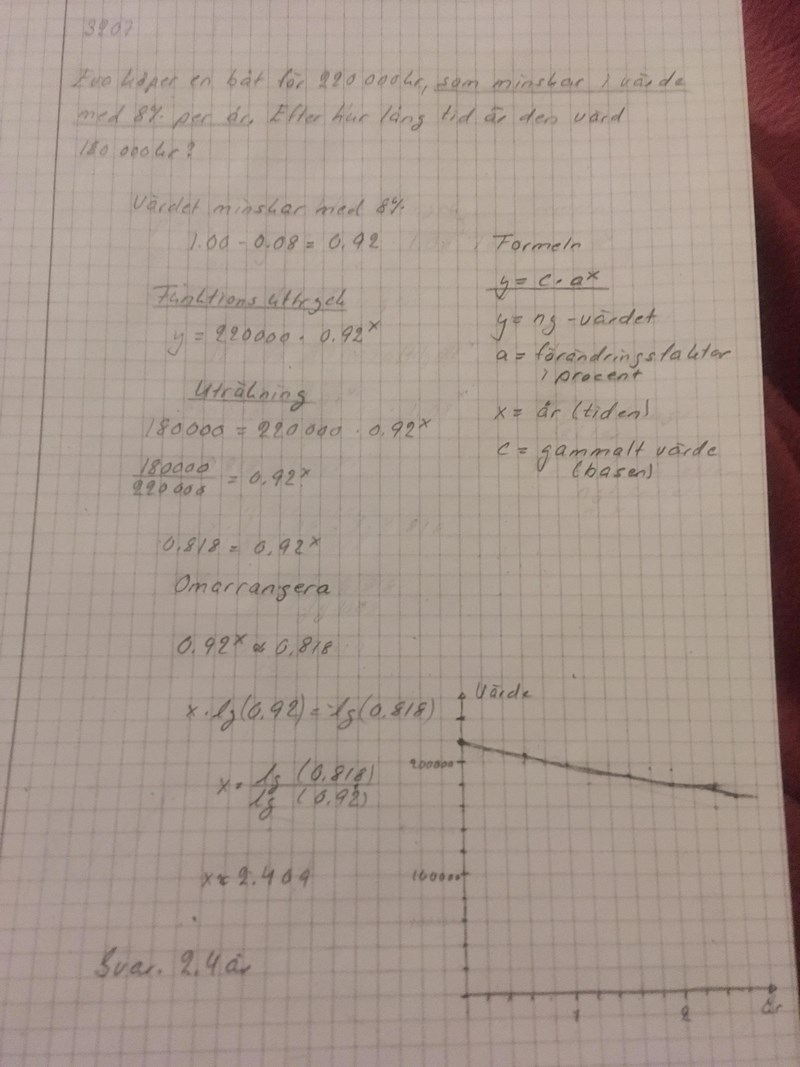 3207
Eva köper en båt för 220 000kr, som minskar i värde
med 8% per år. Efter hur lång tid är den värd
180 000kr?
Värdet minskar med 8%
1.00 - 0.08 = 0.92
Funktions uttryck
y = 220000 · 0.92^x
Uträkning
180000 = 220000 · 0.92^x
180000/220000 = 0.92^x
0.818 = 0.92^x
Omarrangera
0.92^x ≈ 0.818
x · lg(0.92) = lg(0.818)
x = lg (0.818) / lg (0.92)
x ≈ 2.409
Svar. 2.4 år
Formeln
y = c · a^x
y = ny-värdet
a = förändringsfaktor
i procent
x = år (tiden)
c = gammalt värde
(basen)
Värde
200000
100000
1 2 år